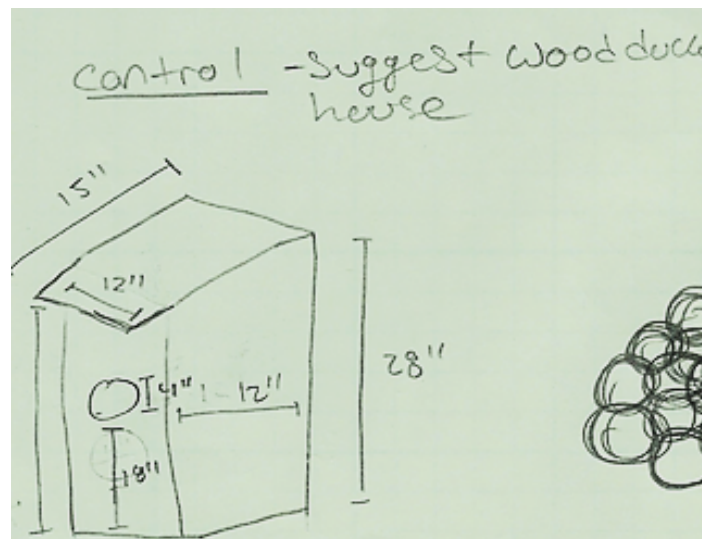 control - Suggest wood duck
house
15"
12"
4"
12"
28"
18"